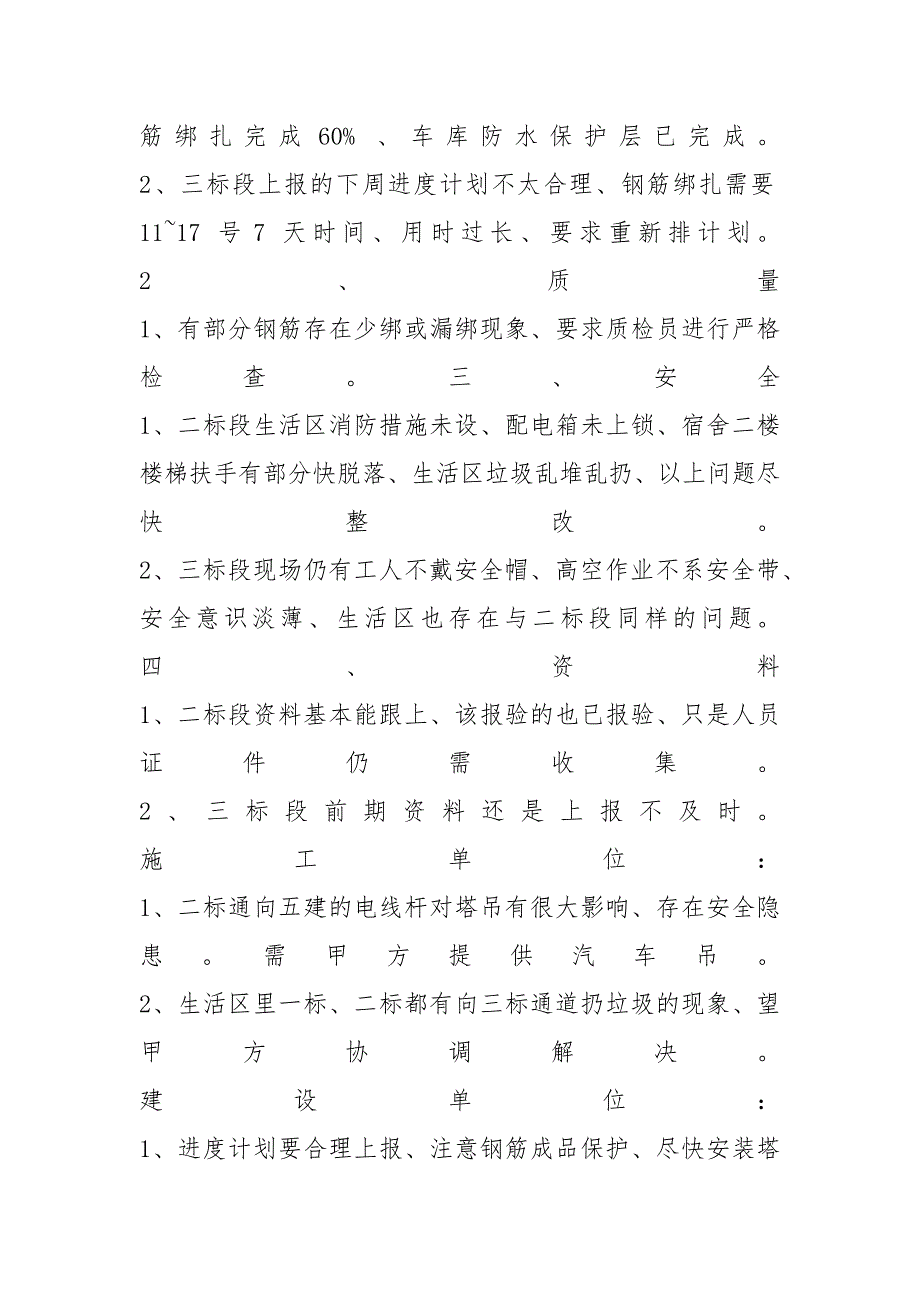 筋绑扎完成60%、车库防水保护层已完成。
2、三标段上报的下周进度计划不太合理、钢筋绑扎需要
11~17 号 7 天时间、用时过长、要求重新排计划。
2、质量
1、有部分钢筋存在少绑或漏绑现象、要求质检员进行严格
检查。三、安全
1、二标段生活区消防措施未设、配电箱未上锁、宿舍二楼
楼梯扶手有部分快脱落、生活区垃圾乱堆乱扔、以上问题尽
快整改。
2、三标段现场仍有工人不戴安全帽、高空作业不系安全带、
安全意识淡薄、生活区也存在与二标段同样的问题。
四、资料
1、二标段资料基本能跟上、该报验的也已报验、只是人员
证件仍需收集。
2、三标段前期资料还是上报不及时。
施工单位：
1、二标通向五建的电线杆对塔吊有很大影响、存在安全隐
患。需甲方提供汽车吊。
2、生活区里一标、二标都有向三标通道扔垃圾的现象、望
甲方协调解决。
建设单位：
1、进度计划要合理上报、注意钢筋成品保护、尽快安装塔